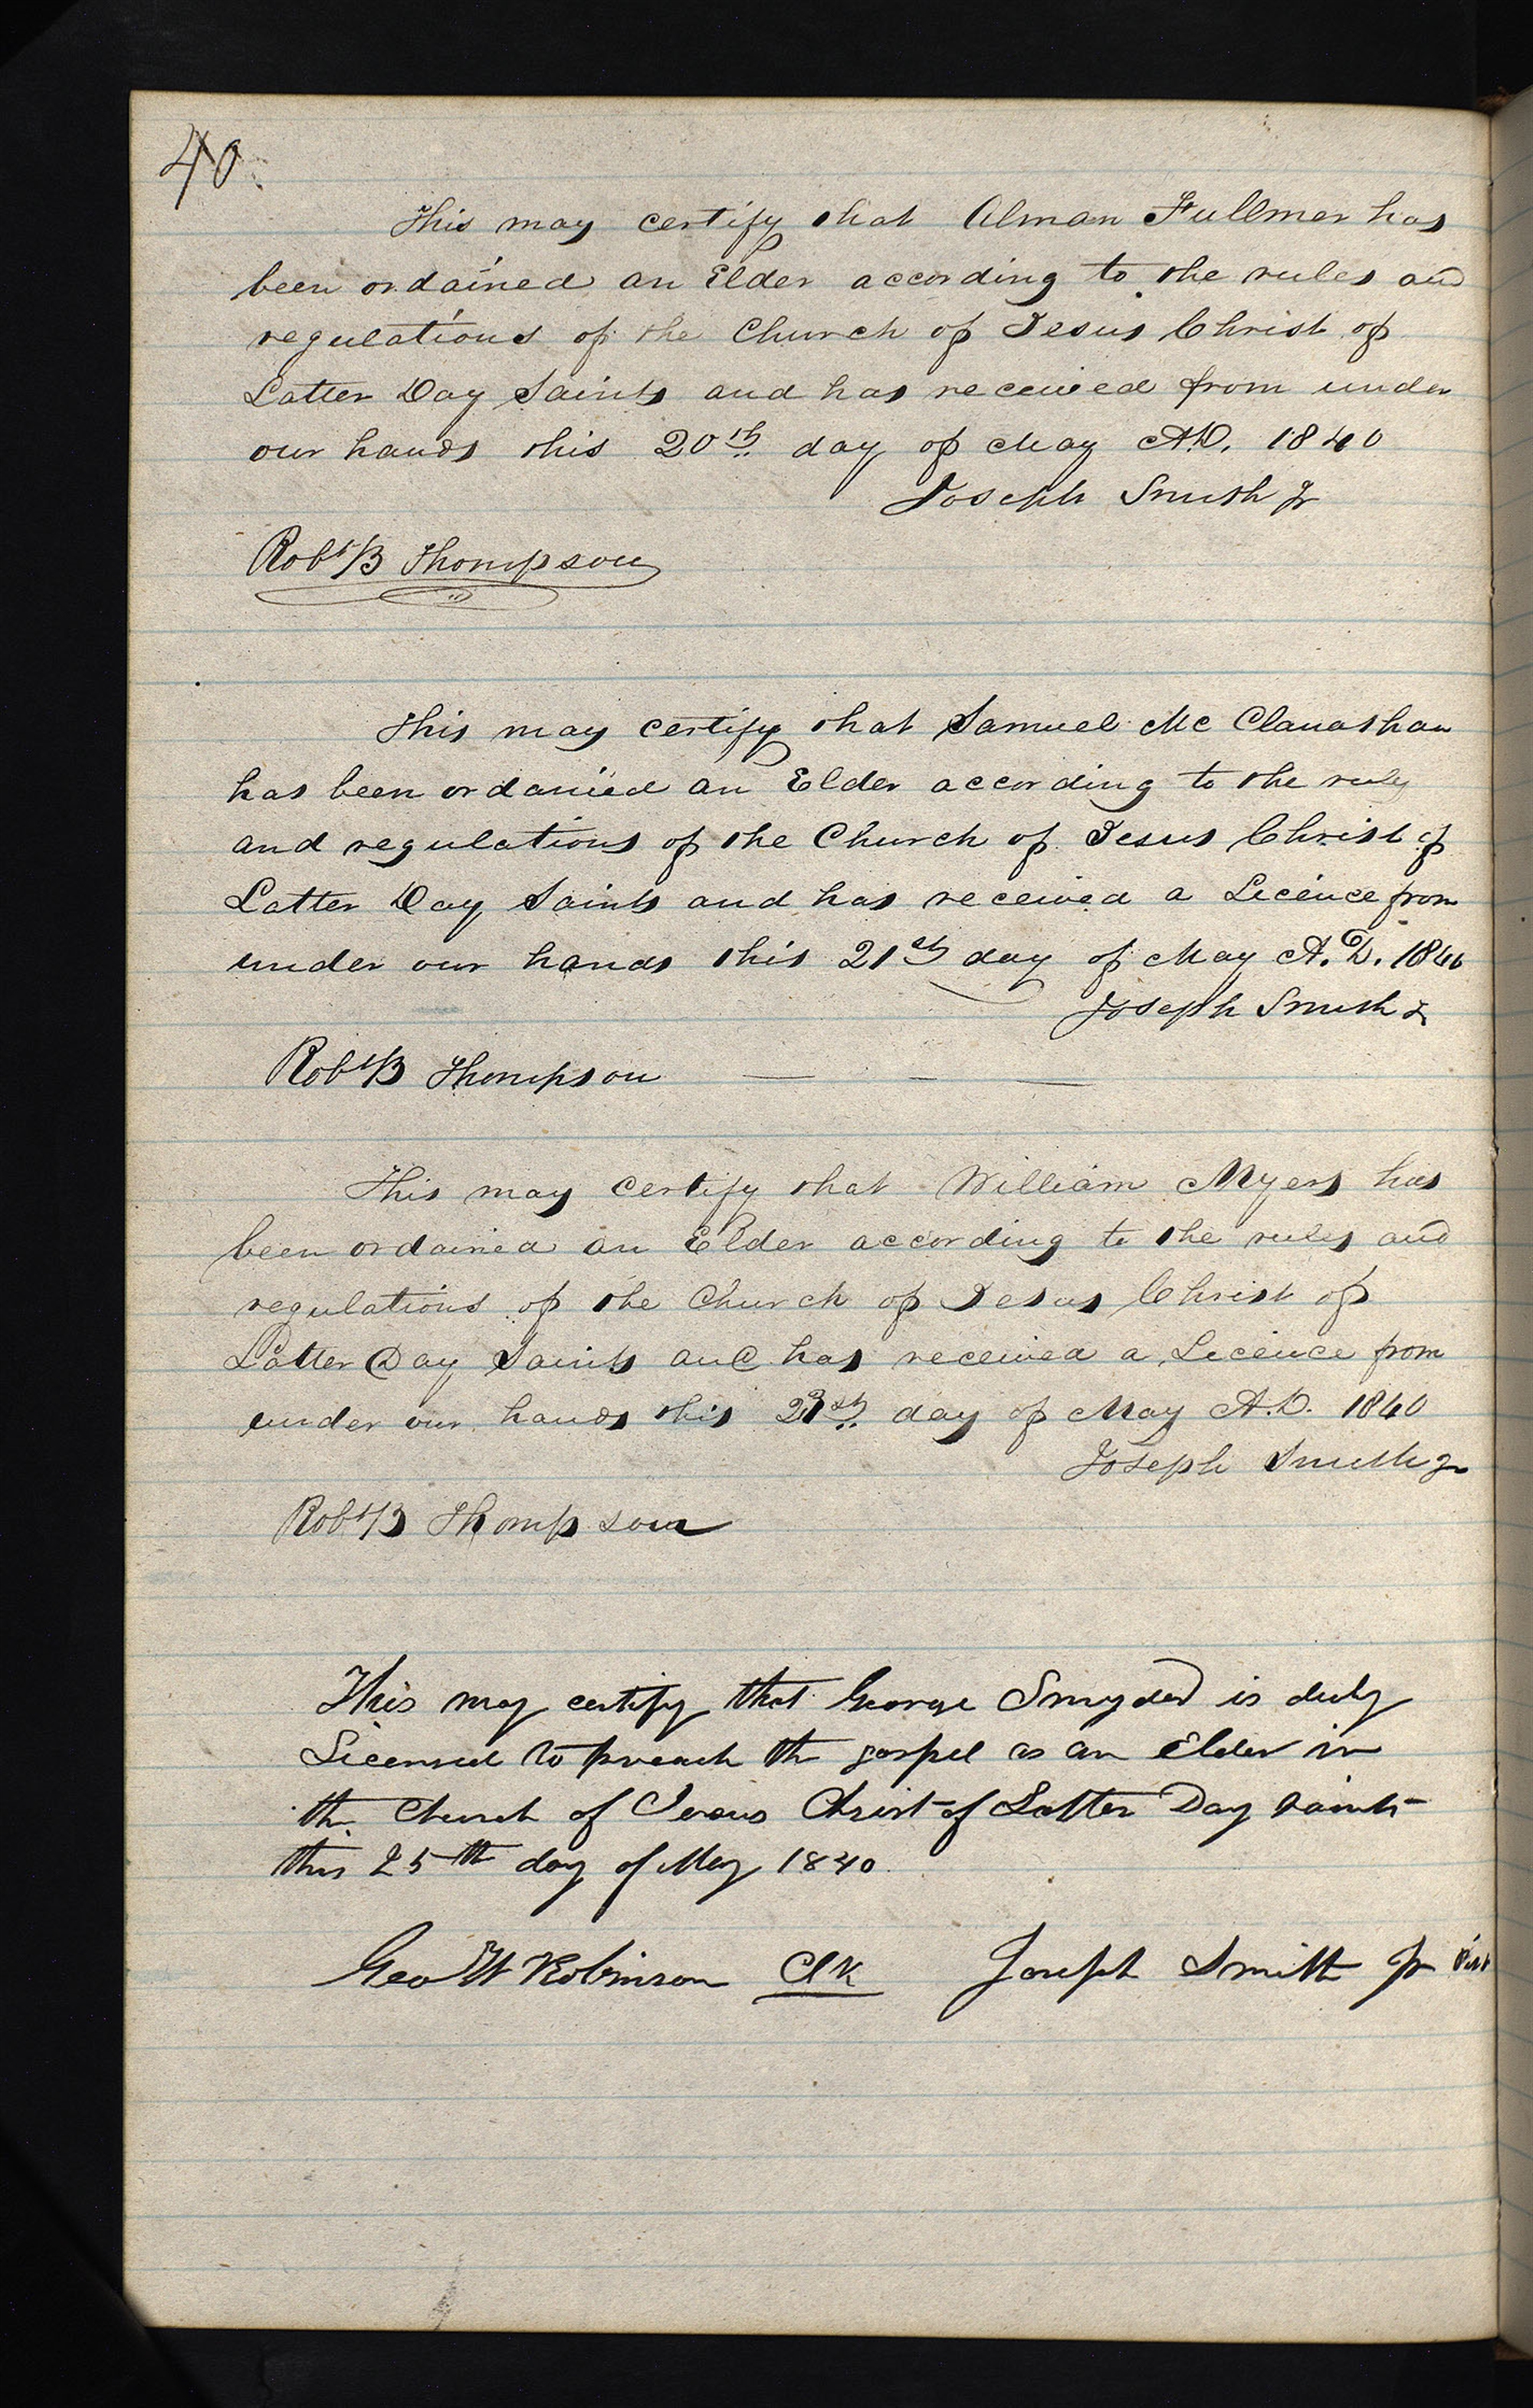 40
This may certify that Alman Fullmer has
been ordained an Elder according to the rules and
regulations of the Church of Jesus Christ of
Latter Day Saints and has received from under
our hands this 20th day of May A.D. 1840
Joseph Smith Jr
Robt B Thompson
This may certify that Samuel Mc Clanathan
has been ordained an Elder according to the rules
and regulations of the Church of Jesus Christ of
Latter Day Saints and has received a Licence from
under our hands this 21st day of May A.D. 1840
Joseph Smith Jr
Robt B Thompson
This may certify that William Myers has
been ordained an Elder according to the rules and
regulations of the Church of Jesus Christ of
Latter Day Saints and has received a Licence from
under our hands this day of May A.D. 1840
Joseph Smith Jr
Robt B Thompson
This may certify that George Smyder is duly
Licensed to preach the gospel as an Elder in
the Church of Jesus Christ of Latter Day Saints
this 25th day of May 1840.
Geo W Robinson Clk Joseph Smith Jr